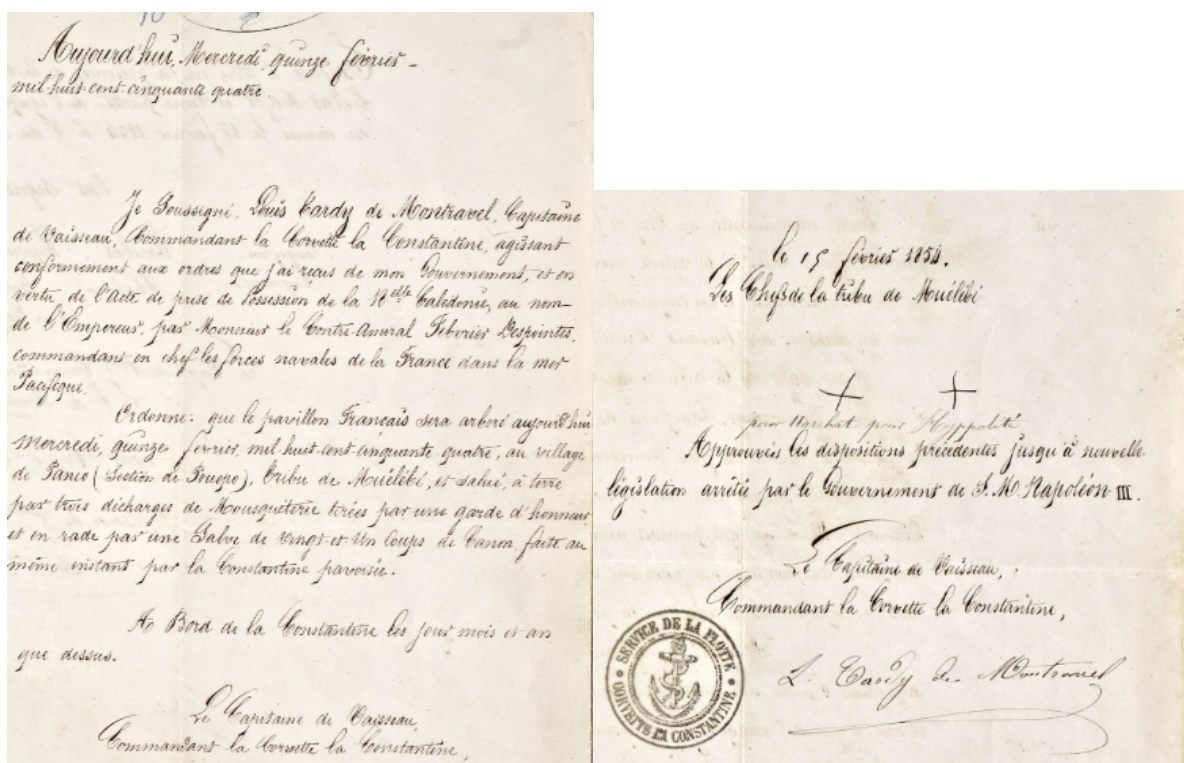 Aujourd'hui, Mercredi, quinze février -
mil huit cent cinquante quatre
Je Soussigné, Louis Tardy de Montravel, Capitaine
de Vaisseau, Commandant la Corvette la Constantine, agissant
conformement aux ordres que j'ai reçus de mon Gouvernement, et en
vertu, de l'Acte de prise de Possession de la Nelle Calédonie, au nom-
de l'Empereur, par Monsieur le Contre-Amiral Febvrier Despointes,
commandant en chef les forces navales de la France dans la mer
Pacifique.
Ordonne: que le pavillon Français sera arboré aujourd'hui
Mercredi, quinze fevrier, mil huit cent cinquante quatre, au village
de (Section de Pouepo), tribu de Muélébé, et salué, à terre
par trois décharges de Mousqueterie tirées par une garde d'honneur
et en rade par une Salve de vingt et Un Coups de Canon, faite au
même instant par la Constantine pavoisée.
A Bord de la Constantine les jour, mois et an
que dessus.
Le Capitaine de Vaisseau,
Commandant la Corvette la Constantine,
le 15 février 1854.
Les Chefs de la tribu de Muélébé
pour pour Hyppolite
Approuvés les dispositions précédentes jusqu'à nouvelle
législation arrêtée par le Gouvernement de S. M. Napoléon III.
Le Capitaine de Vaisseau,
Commandant la Corvette la Constantine,
L. Tardy de Montravel
SERVICE DE LA FLOTTE
CORVETTE LA CONSTANTINE